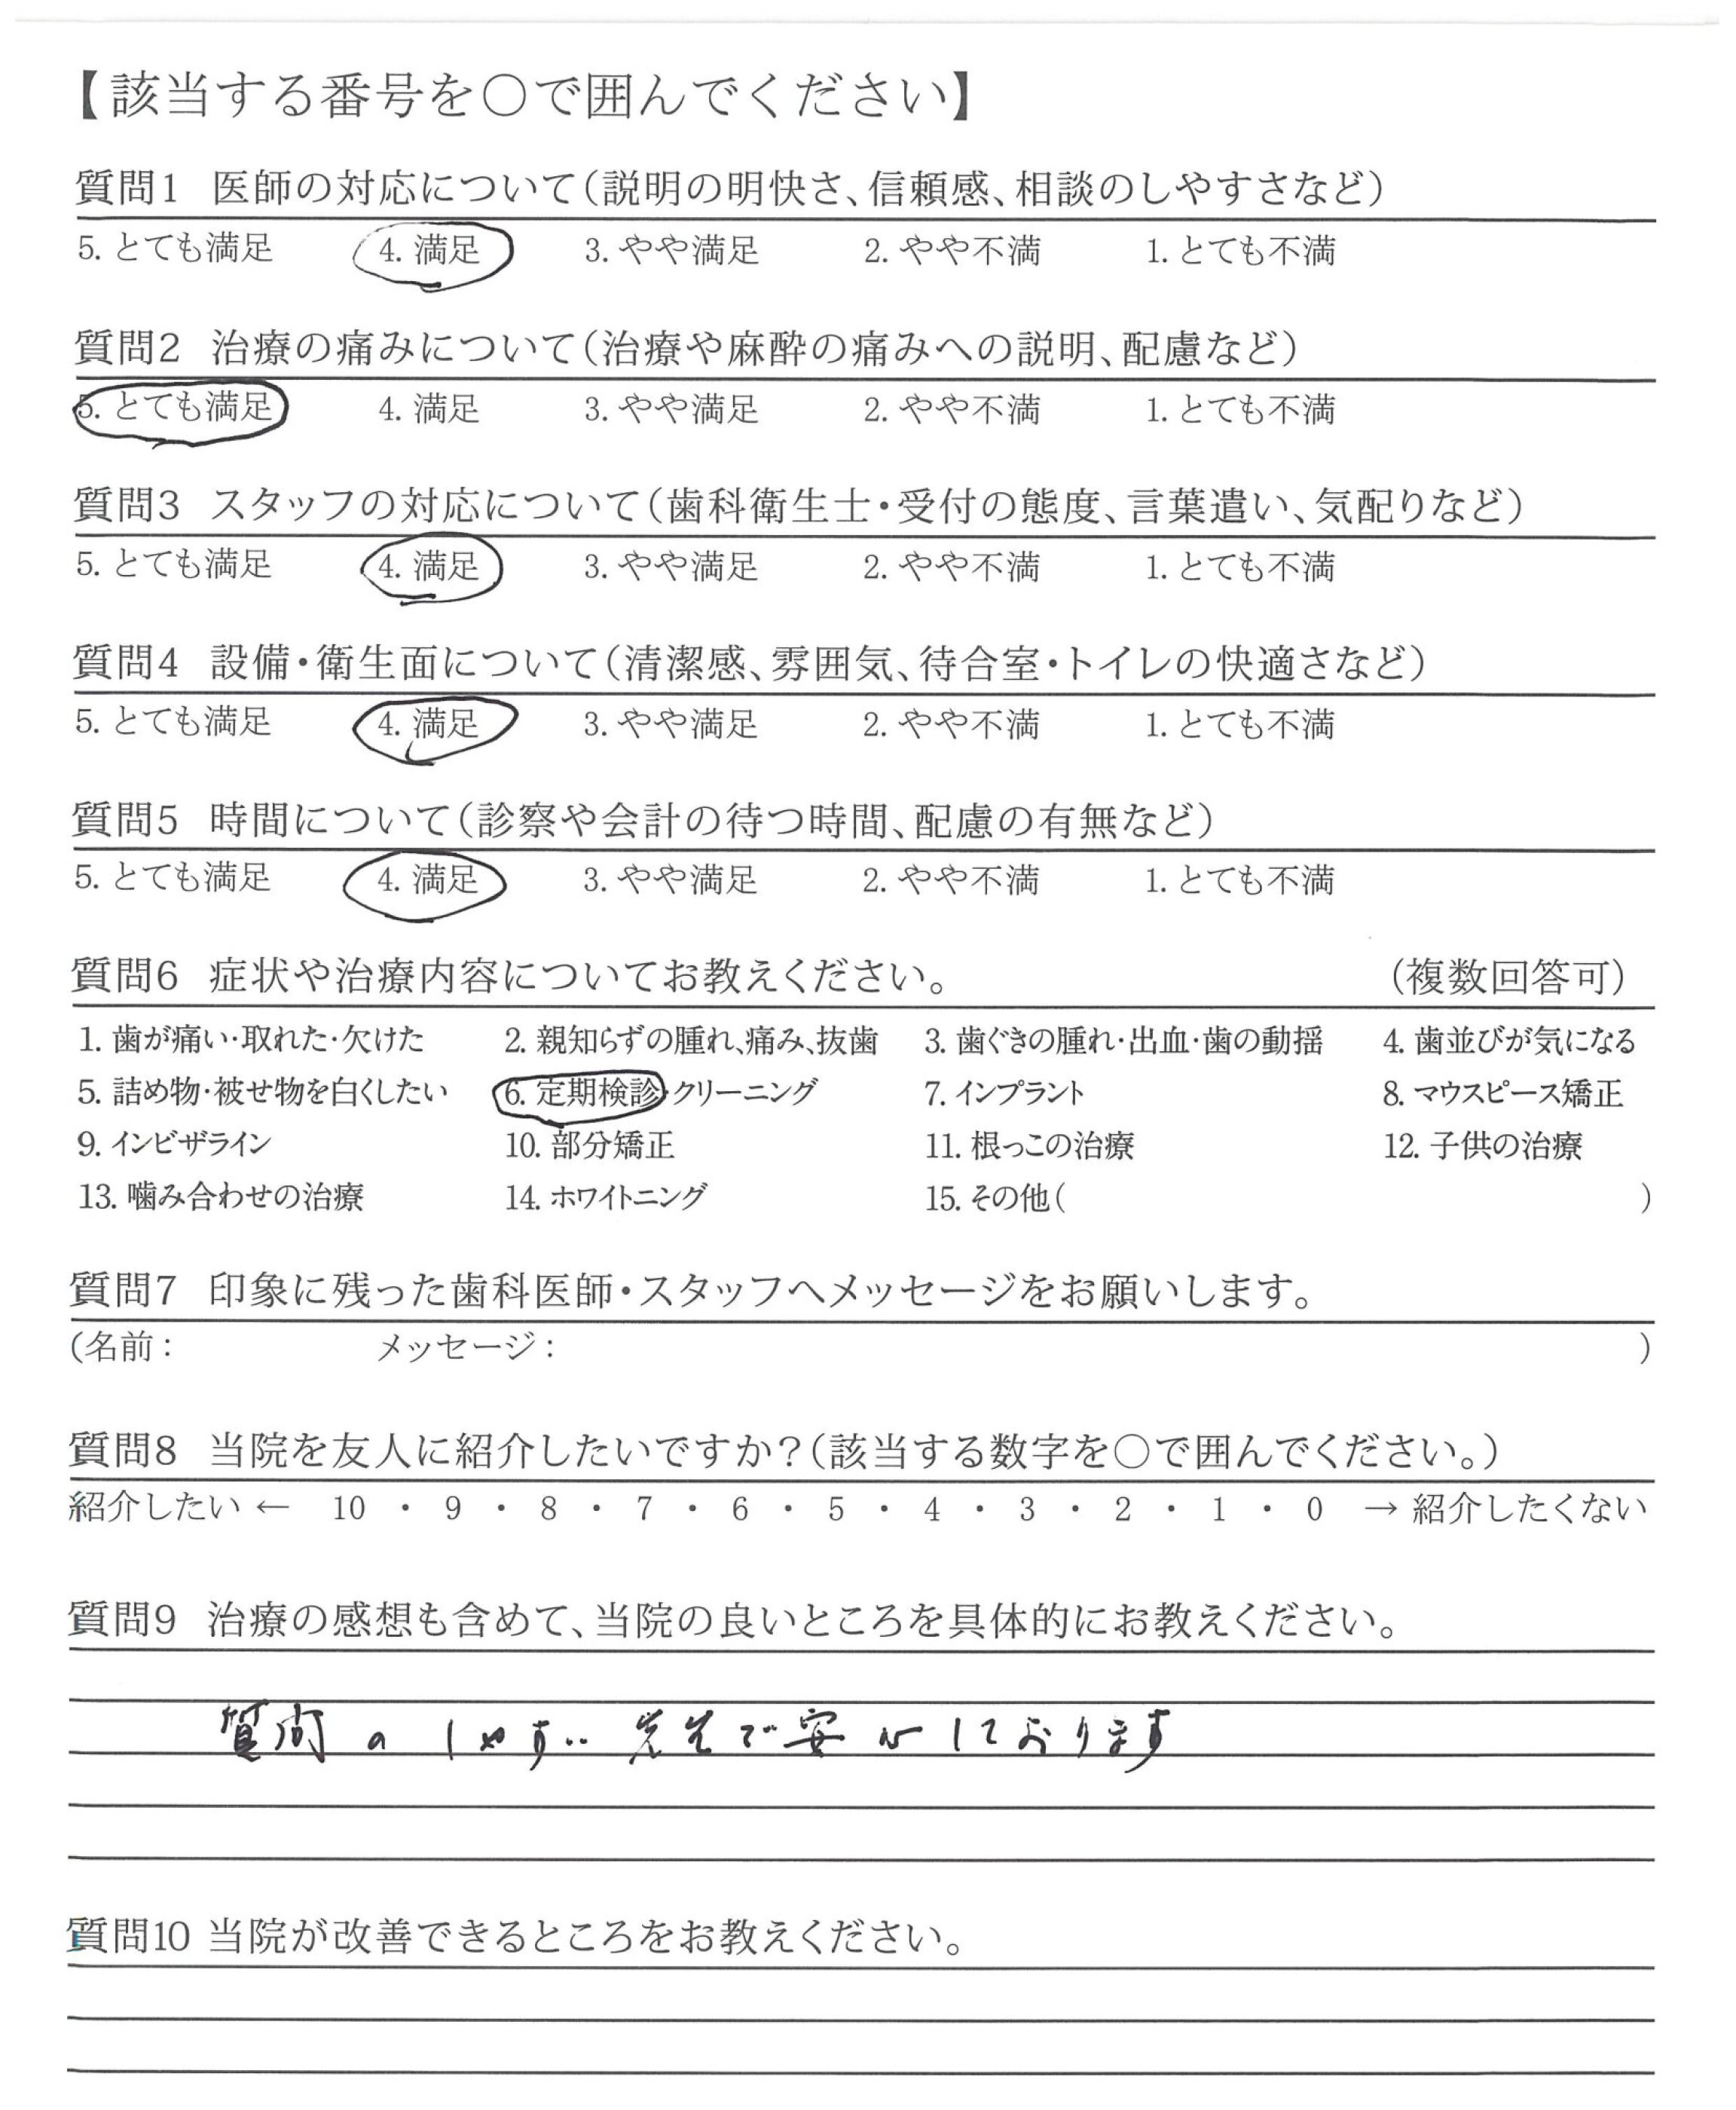 【該当する番号を○で囲んでください】
質問1 医師の対応について(説明の明快さ、信頼感、相談のしやすさなど)
5. とても満足 4. 満足 3. やや満足 2. やや不満 1. とても不満
質問2 治療の痛みについて(治療や麻酔の痛みへの説明、配慮など)
5. とても満足 4. 満足 3. やや満足 2. やや不満 1. とても不満
質問3 スタッフの対応について(歯科衛生士・受付の態度、言葉遣い、気配りなど)
5. とても満足 4. 満足 3. やや満足 2. やや不満 1. とても不満
質問4 設備・衛生面について(清潔感、雰囲気、待合室・トイレの快適さなど)
5. とても満足 4. 満足 3. やや満足 2. やや不満 1. とても不満
質問5 時間について(診察や会計の待つ時間、配慮の有無など)
5. とても満足 4. 満足 3. やや満足 2. やや不満 1. とても不満
質問6 症状や治療内容についてお教えください。 (複数回答可)
1. 歯が痛い・取れた・欠けた 2. 親知らずの腫れ、痛み、抜歯 3. 歯ぐきの腫れ・出血・歯の動揺 4. 歯並びが気になる
5. 詰め物・被せ物を白くしたい 6. 定期検診・クリーニング 7. インプラント 8. マウスピース矯正
9. インビザライン 10. 部分矯正 11. 根っこの治療 12. 子供の治療
13. 噛み合わせの治療 14. ホワイトニング 15. その他( )
質問7 印象に残った歯科医師・スタッフへメッセージをお願いします。
(名前: メッセージ: )
質問8 当院を友人に紹介したいですか?(該当する数字を○で囲んでください。)
紹介したい ← 10 ・ 9 ・ 8 ・ 7 ・ 6 ・ 5 ・ 4 ・ 3 ・ 2 ・ 1 ・ 0 → 紹介したくない
質問9 治療の感想も含めて、当院の良いところを具体的にお教えください。
質問のしやすい先生で安心しております
質問10 当院が改善できるところをお教えください。